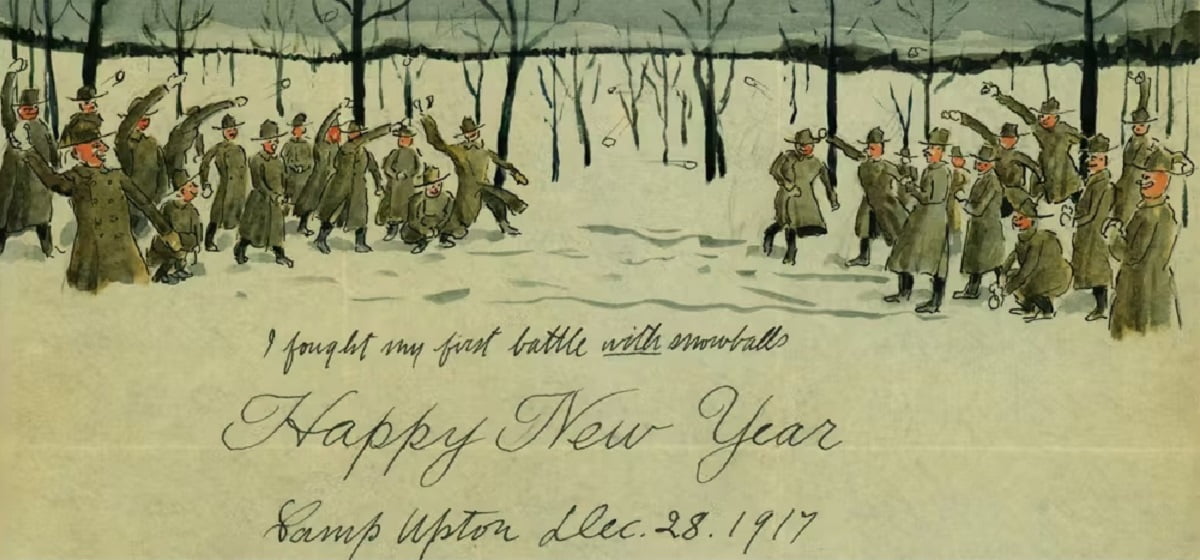 I fought my first battle with snowballs
Happy New Year
Camp Upton Dec. 28. 1917